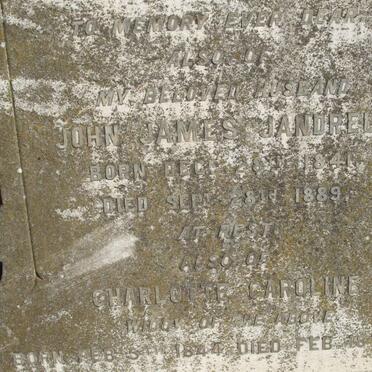 TO MEMORY EVER DEAR
ALSO OF
MY BELOVED HUSBAND
JOHN JAMES JANDREL
BORN DEC. 1841.
DIED SEPT 28TH 1889.
AT REST
ALSO OF
CHARLOTTE CAROLINE
WIDOW OF THE ABOVE
BORN FEB 1844 DIED FEB